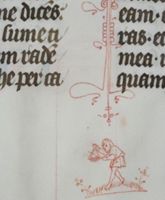 ne dicēs.
sume ti
m radē
he per ca
eam·
ras·et
mea·r
quam